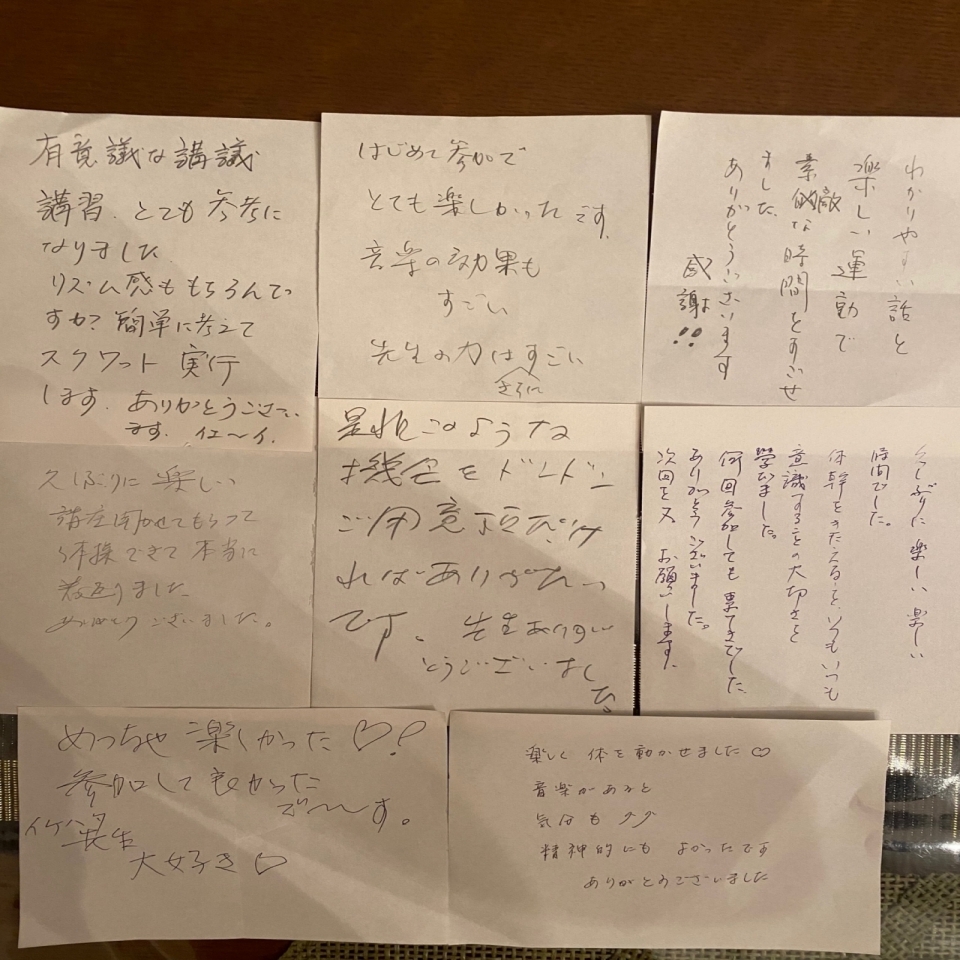 有意議な講議
講習、とても参考に
なりました
リズム感ももちろんで
すか？簡単に考えて
スクワット実行
します。ありがとうござい
ます。イエ〜イ。
はじめて参加で
とても楽しかったです。
音楽の効果も
すごい
先生の力はすごい
さらに
わかりやすい話と
楽しい運動で
素敵な時間をすごせ
ました。
ありがとうございます
感謝!!
久しぶりに楽しい
講座聞かせてもらって
体操できて本当に
若返りました
ありがとうございました。
是非このような
機会をドンドン
ご用意頂だけ
ればありがたい
です。先生ありが
とうございまし
た。
久しぶりに楽しい楽しい
時間でした。
体幹をきたえること、いつもいつも
意識することの大切さを
学びました。
何回参加しても素てきでした。
ありがとうございました。
次回も又お願いします。
めっちゃ楽しかった♡!
参加して良かった
で〜〜す。
先生
大好き♡
楽しく体を動かせました♡
音楽があると
気分も
精神的にもよかったです
ありがとうございました